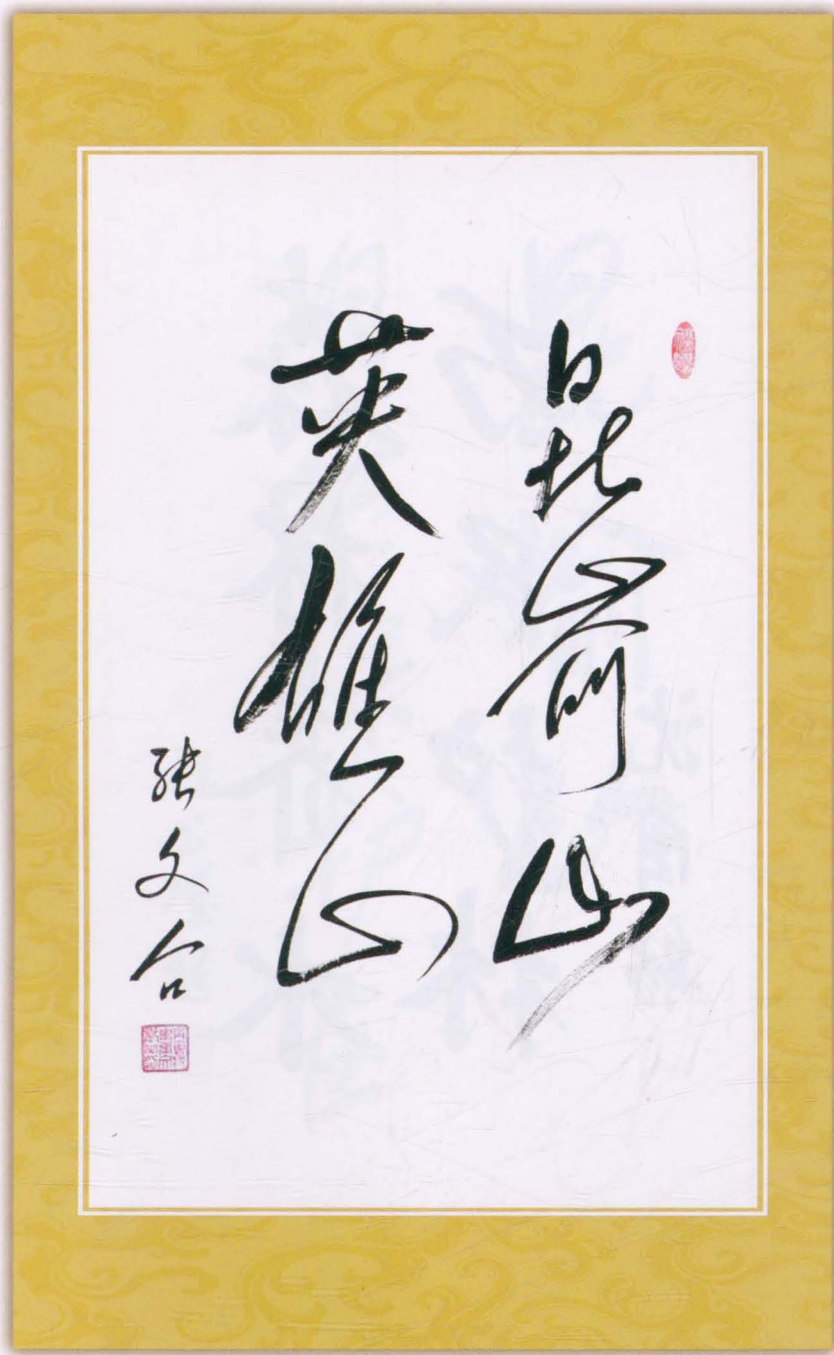 昆嵛山
英雄山
张文台